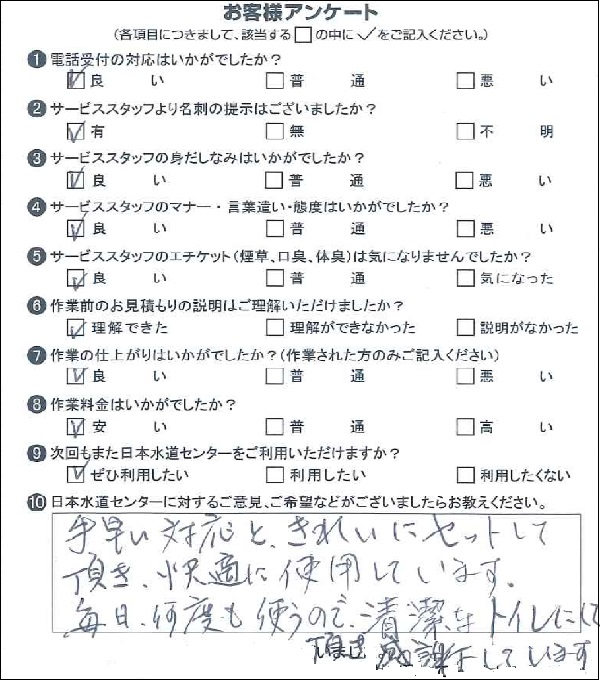 お客様アンケート
(各項目につきまして、該当する□の中に✓をご記入ください。)
❶ 電話受付の対応はいかがでしたか?
☑良い □普通 □悪い
❷ サービススタッフより名刺の提示はございましたか?
☑有 □無 □不明
❸ サービススタッフの身だしなみはいかがでしたか?
☑良い □普通 □悪い
❹ サービススタッフのマナー・言葉遣い・態度はいかがでしたか?
☑良い □普通 □悪い
❺ サービススタッフのエチケット(煙草、口臭、体臭)は気になりませんでしたか?
☑良い □普通 □気になった
❻ 作業前のお見積もりの説明はご理解いただけましたか?
☑理解できた □理解ができなかった □説明がなかった
❼ 作業の仕上がりはいかがでしたか?(作業された方のみご記入ください)
☑良い □普通 □悪い
❽ 作業料金はいかがでしたか?
☑安い □普通 □高い
❾ 次回もまた日本水道センターをご利用いただけますか?
☑ぜひ利用したい □利用したい □利用したくない
❿ 日本水道センターに対するご意見、ご希望などがございましたらお教えください。
手早い対応と、きれいにセットして
頂き、快適に使用しています。
毎日、何度も使うので、清潔なトイレにして
頂き感謝しています